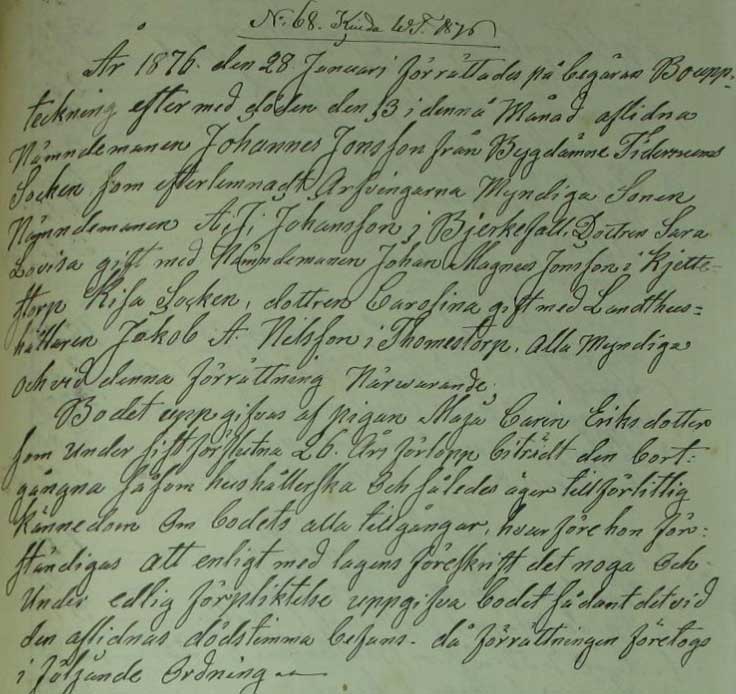 No. 68. Kinda W.T. 1876
År 1876. den 28 Januari förrättades på begäran Boupp-
teckning efter med döden den 13 i denna Månad aflidna
Nämndemannen Johannes Jonsson från Bygdämne Tidersrums
Socken som efterlemnadt Arfvingarna Myndiga Sonen
Nämndemannen A. J. Johansson i Bjerkefall. Dottren Sara
Lovisa gift med Nämndemannen Johan Magnus Jonsson i Kjette-
storp Kisa Socken, dottren Carolina gift med Landthus=
hållaren Jakob A. Nilsson i Thomestorp. alla Myndiga
och vid denna förrättning Närwarande;
Bodet uppgifvas af pigan Maja Carin Eriksdotter
som under sistförflutna 26. Års förlopp biträdt den bort:
gångna såsom hushållerska Och således äger tillförlitlig
kännedom Om bodets alla tillgångar, hvarföre hon för:
ständigas att enligt med lagens föreskrift det noga Och
Under edlig förpliktelse uppgifva bodet sådant det vid
den aflidnas dödstimma befans. då förrättningen företogs
i följande Ordning